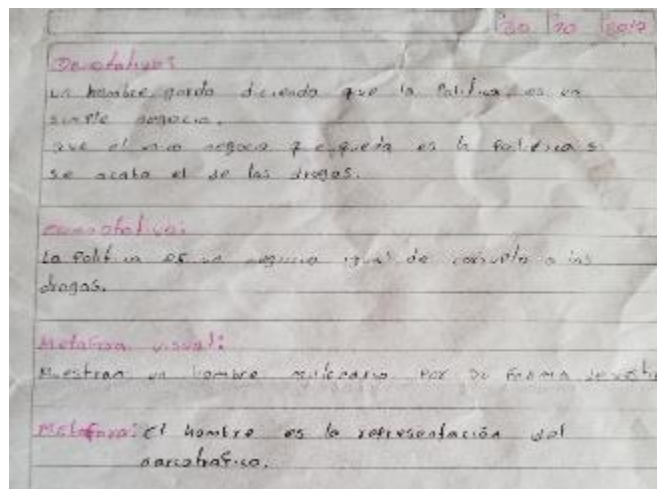 30 10 2017
Denotativo:
un hombre gordo diciendo que la Politica es un
simple negocio.
que el unico negocio que queda es la Politica si
se acaba el de las drogas.
Connotativo:
La Politica es un negocio igual de corrupto a las
drogas.
Metafora visual:
Muestran un hombre millonario Por su forma de vestir
Metafora: El hombre es la representación del
narcotrafico.